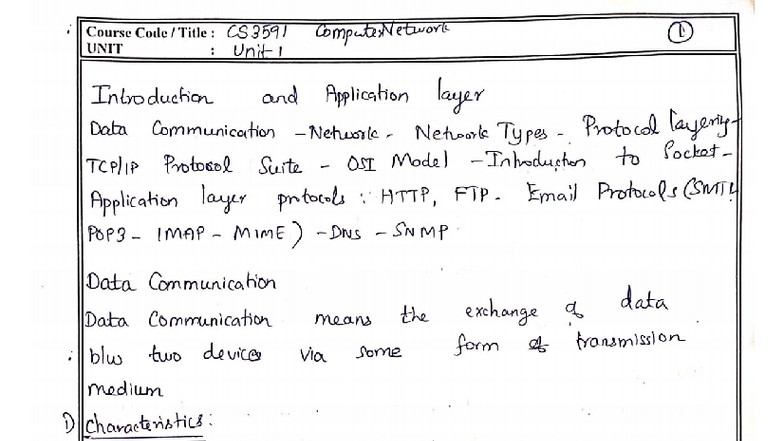 Course Code / Title : CS3591 Computer Network
①
UNIT : Unit-1
Introduction and Application layer
Data Communication - Network - Network Types - Protocol layering -
TCP/IP Protocol Suite - OSI Model - Introduction to Socket -
Application layer protocols : HTTP, FTP - Email Protocols (SMTP
POP3 - IMAP - MIME) - DNS - SNMP
Data Communication
Data Communication means the exchange of data
b/w two devices via some form of transmission
medium
1) Characteristics :